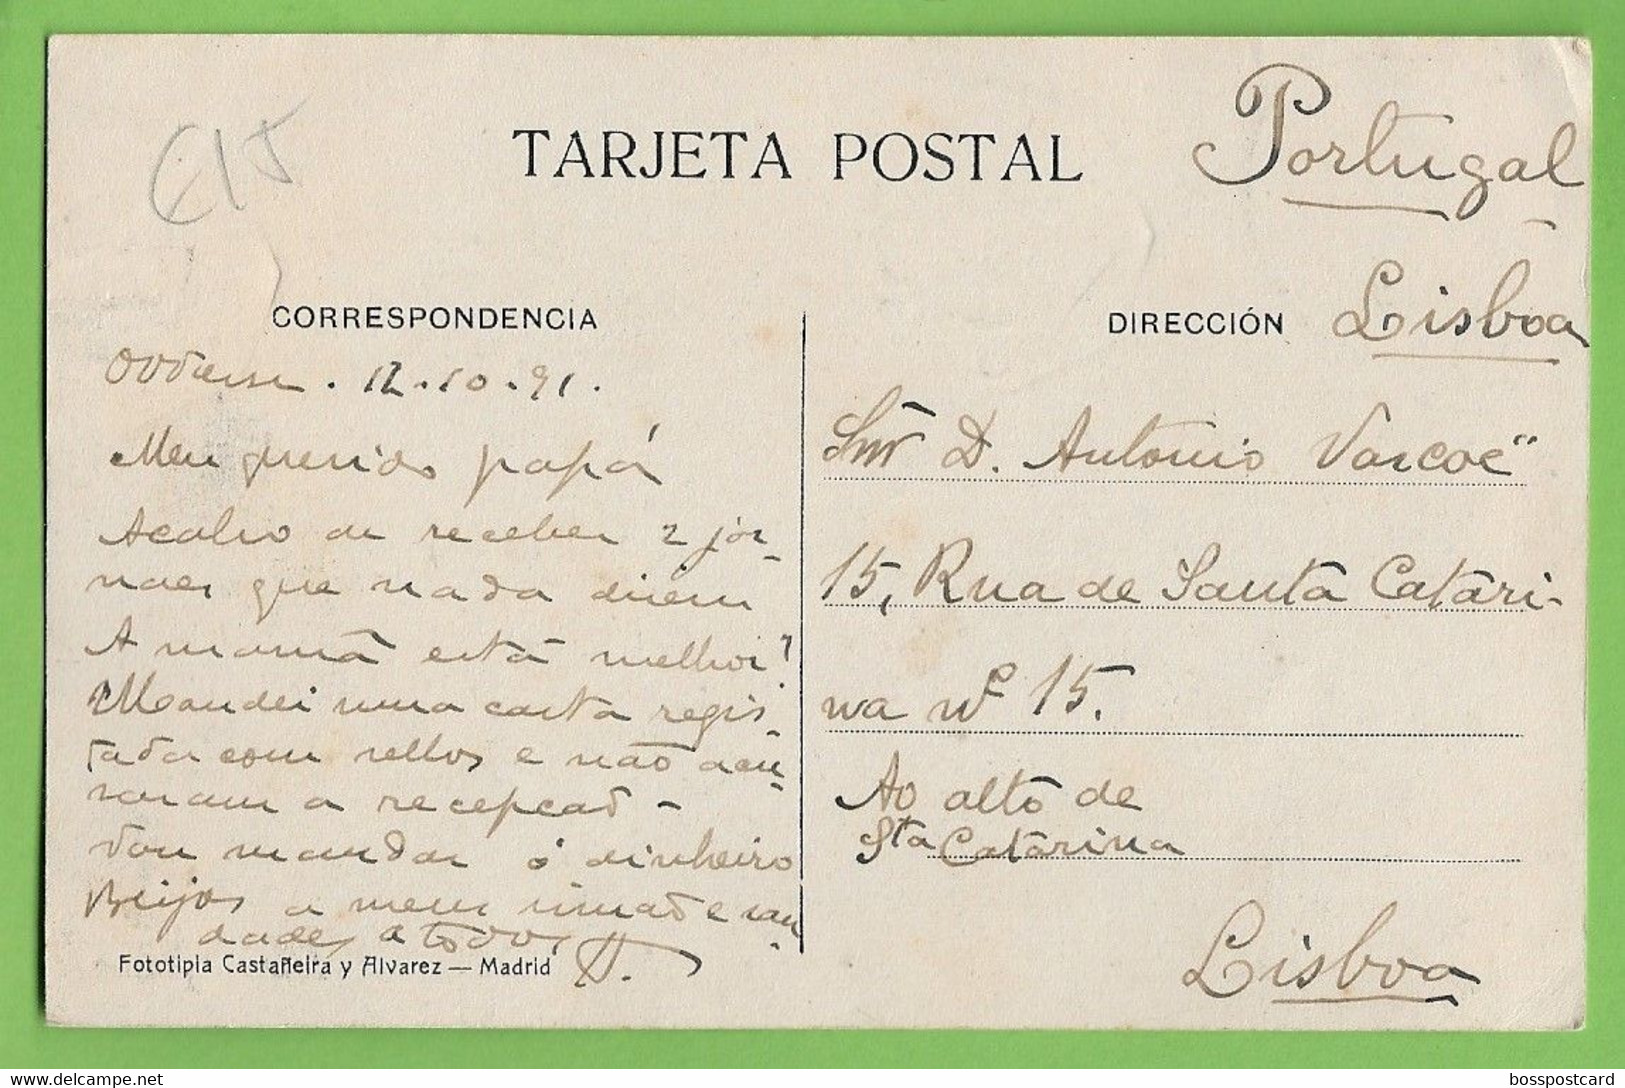 E15
TARJETA POSTAL
Portugal
Lisboa
CORRESPONDENCIA
DIRECCIÓN
12.10.91.
Meu querido papá
Acabo de receber 2 jor-
naes que nada dizem
A mamã está melhor?
Mandei uma carta regis-
tada com sellos e não acu-
saram a recepção -
Vou mandar o dinheiro
Beijos a meu irmão e sau-
dades a todos
Fototipia Castañeira y Alvarez — Madrid
Snr D. Antonio
15, Rua de Santa Catari-
na nº 15.
Ao alto de
Sta Catarina
Lisboa
bosspostcard